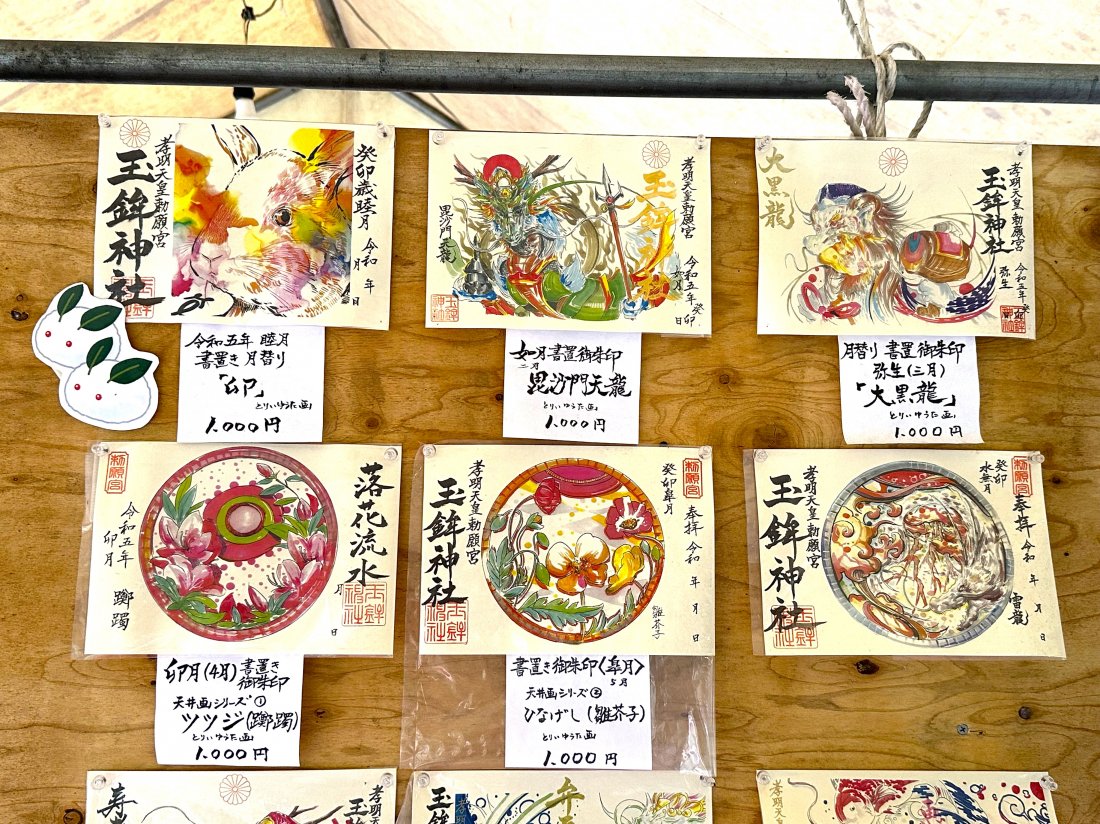 孝明天皇勅願宮
玉鉾神社
癸卯歳睦月
令和 年
月 日
令和五年 睦月
書置き月替り
「卯」
とりいゆうた画
1.000円
孝明天皇勅願宮
玉鉾
毘沙門天龍
令和五年 癸卯
如月 日
如月書置御朱印
二月
毘沙門天龍
とりいゆうた画
1.000円
大黒龍
孝明天皇勅願宮
玉鉾神社
令和五年 癸卯
弥生
月替り 書置御朱印
弥生(三月)
「大黒龍」
とりいゆうた画
1.000円
勅願宮
落花流水
令和五年
卯月
躑躅
月 日
卯月(4月) 書置き
御朱印
天井画シリーズ①
ツツジ(躑躅)
とりいゆうた画
1.000円
孝明天皇勅願宮
玉鉾神社
癸卯皐月
勅願宮
奉拝 令和 年 月 日
雛芥子
書置き御朱印〈皐月〉
5月
天井画シリーズ②
ひなげし(雛芥子)
とりいゆうた画
1.000円
孝明天皇勅願宮
玉鉾神社
癸卯
水無月
勅願宮
奉拝 令和 年 月 日
雷龍
寿
孝明天皇
玉
玉鉾
孝明
弁